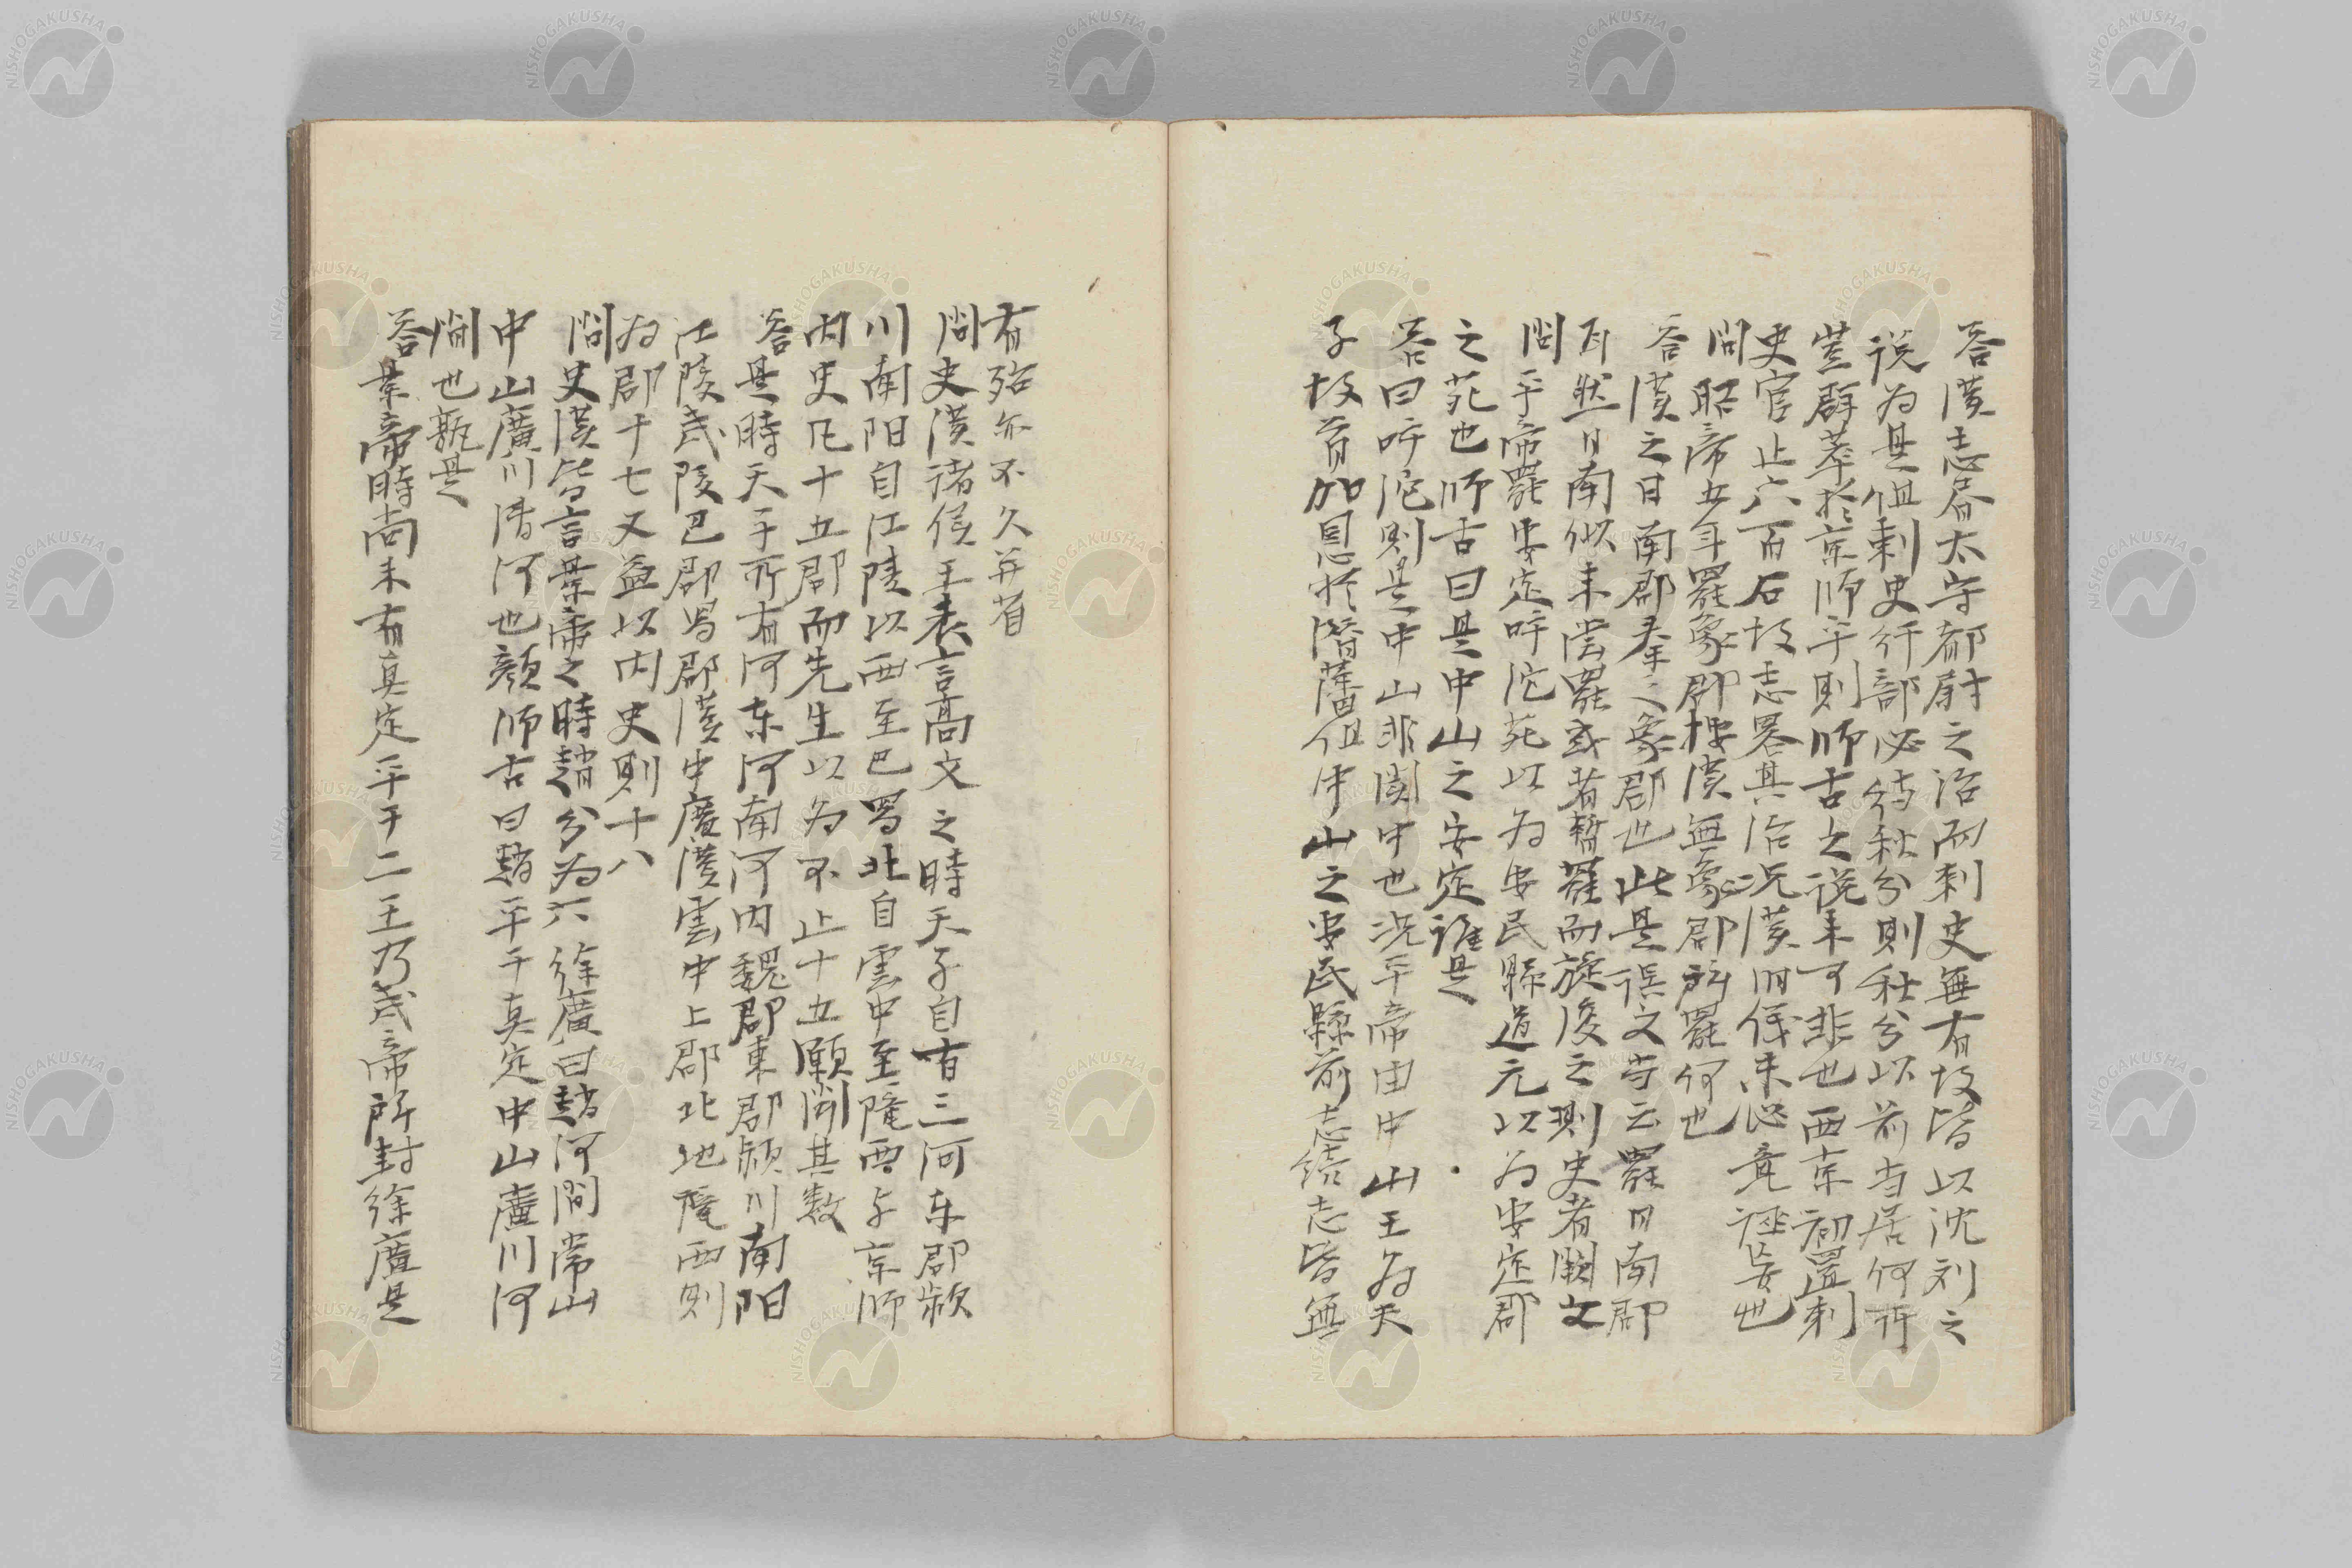 答漢志序太守都尉之治而刺史無有故皆以沈刘之
说為是但刺史行部必待秋分則秋分以前当居何所
豈群萃於京师乎則师古之说未可非也西京初置刺
史官止六百石故志畧其治况漢旧儀未必竟誣妄也
問昭帝五年罷象郡按漢無象郡所罷何也
答漢之日南郡秦之象郡也此是误文当云罷日南郡
耳然日南似未嘗罷或者暫罷而旋復之則史者闕文
問平帝罷安定呼沱苑以为安民縣道元以为安定郡
之苑也师古曰是中山之安定誰是
荅曰呼沱則是中山非関中也况平帝由中山王为天
子故首加恩於潛藩但中山之安民縣前志續志皆無
有殆亦不久并省
問史漢诸侯王表言高文之時天子自有三河东郡颍
川南阳自江陵以西至巴蜀北自雲中至隴西与京师
内史凡十五郡而先生以为不止十五願闻其数
答是時天子所有河东河南河内魏郡東郡颍川南阳
江陵武陵巴郡蜀郡漢中廣漢雲中上郡北地隴西則
为郡十七又益以内史則十八
問史漢皆言景帝之時趙分为六徐廣曰趙河間常山
中山廣川清河也颜师古曰趙平干真定中山廣川河
間也孰是
答景帝時尚未有真定平干二王乃武帝所封徐廣是
NISHOGAKUSHA